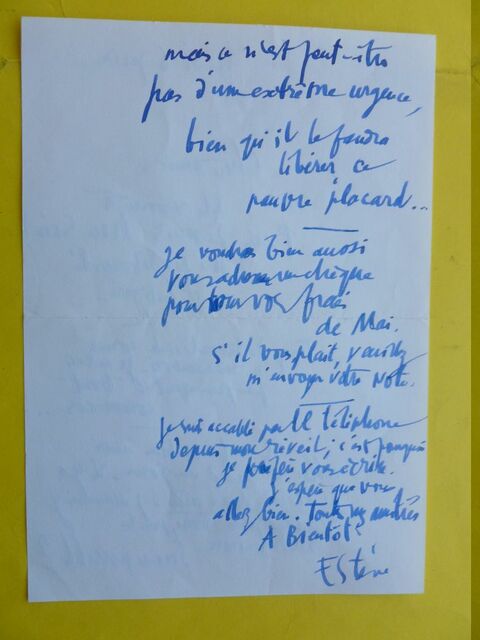 mais ce n'est peut-être
pas d'une extrême urgence,
bien qu'il le faudra
libérer ce
pauvre placard...
je voudrais bien aussi
vous adresser un chèque
pour tous vos frais
de Mai.
s'il vous plaît, veuillez
m'envoyer votre note.
je suis accablé par le téléphone
depuis mon réveil; c'est pourquoi
je préfère vous écrire.
j'espère que vous
allez bien. Toutes mes amitiés
A Bientôt
Estève